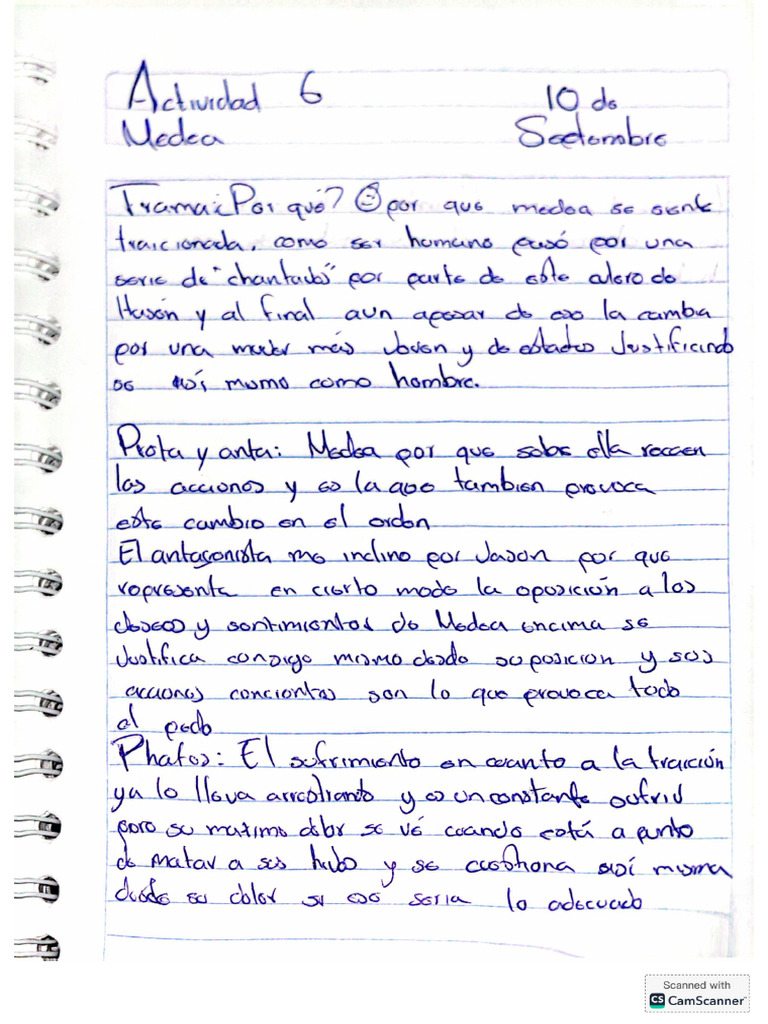 Actividad 6
10 de
Medea
Septiembre
Trama: ¿Por qué? por que medea se siente
traicionada, como ser humano pasó por una
serie de "chantades" por parte de este culero de
Hasón y al final aun apesar de eso la cambia
por una mujer más Joven y de estados Justificando
se así mismo como hombre.
Prota y anta: Medea por que sobre ella recaen
las acciones y es la que tambien provoca
este cambio en el orden
El antagonista me inclino por Jason por que
representa en cierto modo la oposición a los
deseos y sentimientos de Medea encima se
Justifica consigo mismo desde su posicion y sus
acciones concientes son lo que provoca todo
el pedo
Phatos: El sufrimiento en cuanto a la traición
ya lo lleva arrastrando y es un constante sufrir
pero su maximo dolor se vé cuando está a punto
de matar a sus hijos y se cuestiona asi misma
desde su dolor si eso seria lo adecuado
Scanned with
CS CamScanner